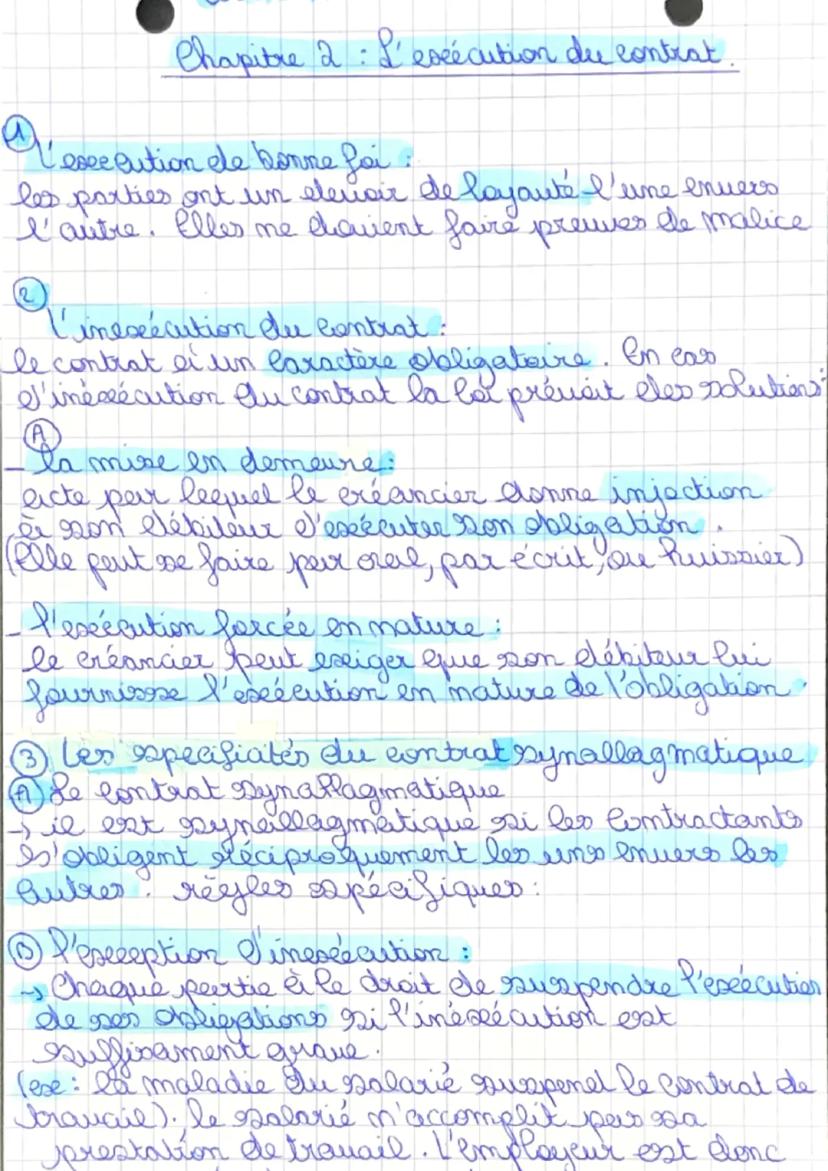 Chapitre 2 : L'exécution du contrat.
1
L'execution de bonne foi :
les parties ont un devoir de loyauté l'une envers
l'autre. Elles ne doivent faire preuves de malice
2
l'inexécution du contrat :
le contrat à un caractère obligatoire. En cas
d'inéxécution du contrat la loi prévoit des solutions :
A
- la mise en demeure :
acte par lequel le créancier donne injection
à son débiteur d'exécuter son obligation.
(Elle peut se faire par oral, par écrit, ou huissier)
- l'exécution forcée en nature :
le créancier peut exiger que son débiteur lui
fournisse l'exécution en nature de l'obligation.
3 Les specificités du contrat synallagmatique
A Le contrat synallagmatique
→ il est synallagmatique si les contractants
s'obligent réciproquement les uns envers les
autres. règles spécifiques :
B l'exception d'inexécution :
→ Chaque partie à le droit de suspendre l'exécution
de ses obligations si l'inéxécution est
suffisament grave.
(ex : la maladie du salarié suspend le contrat de
travail). le salarié n'accomplit pas sa
prestation de travail. L'employeur est donc